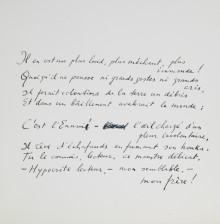 Il en est un plus laid, plus méchant, plus
immonde !
Quoiqu'il ne pousse ni grands gestes ni grands
cris,
Il ferait volontiers de la terre un débris
Et dans un bâillement avalerait le monde ;
C'est l'Ennui — l'œil chargé d'un
pleur involontaire,
Il rêve d'échafauds en fumant son houka.
Tu le connais, lecteur, ce monstre délicat,
— Hypocrite lecteur, — mon semblable, —
mon frère !